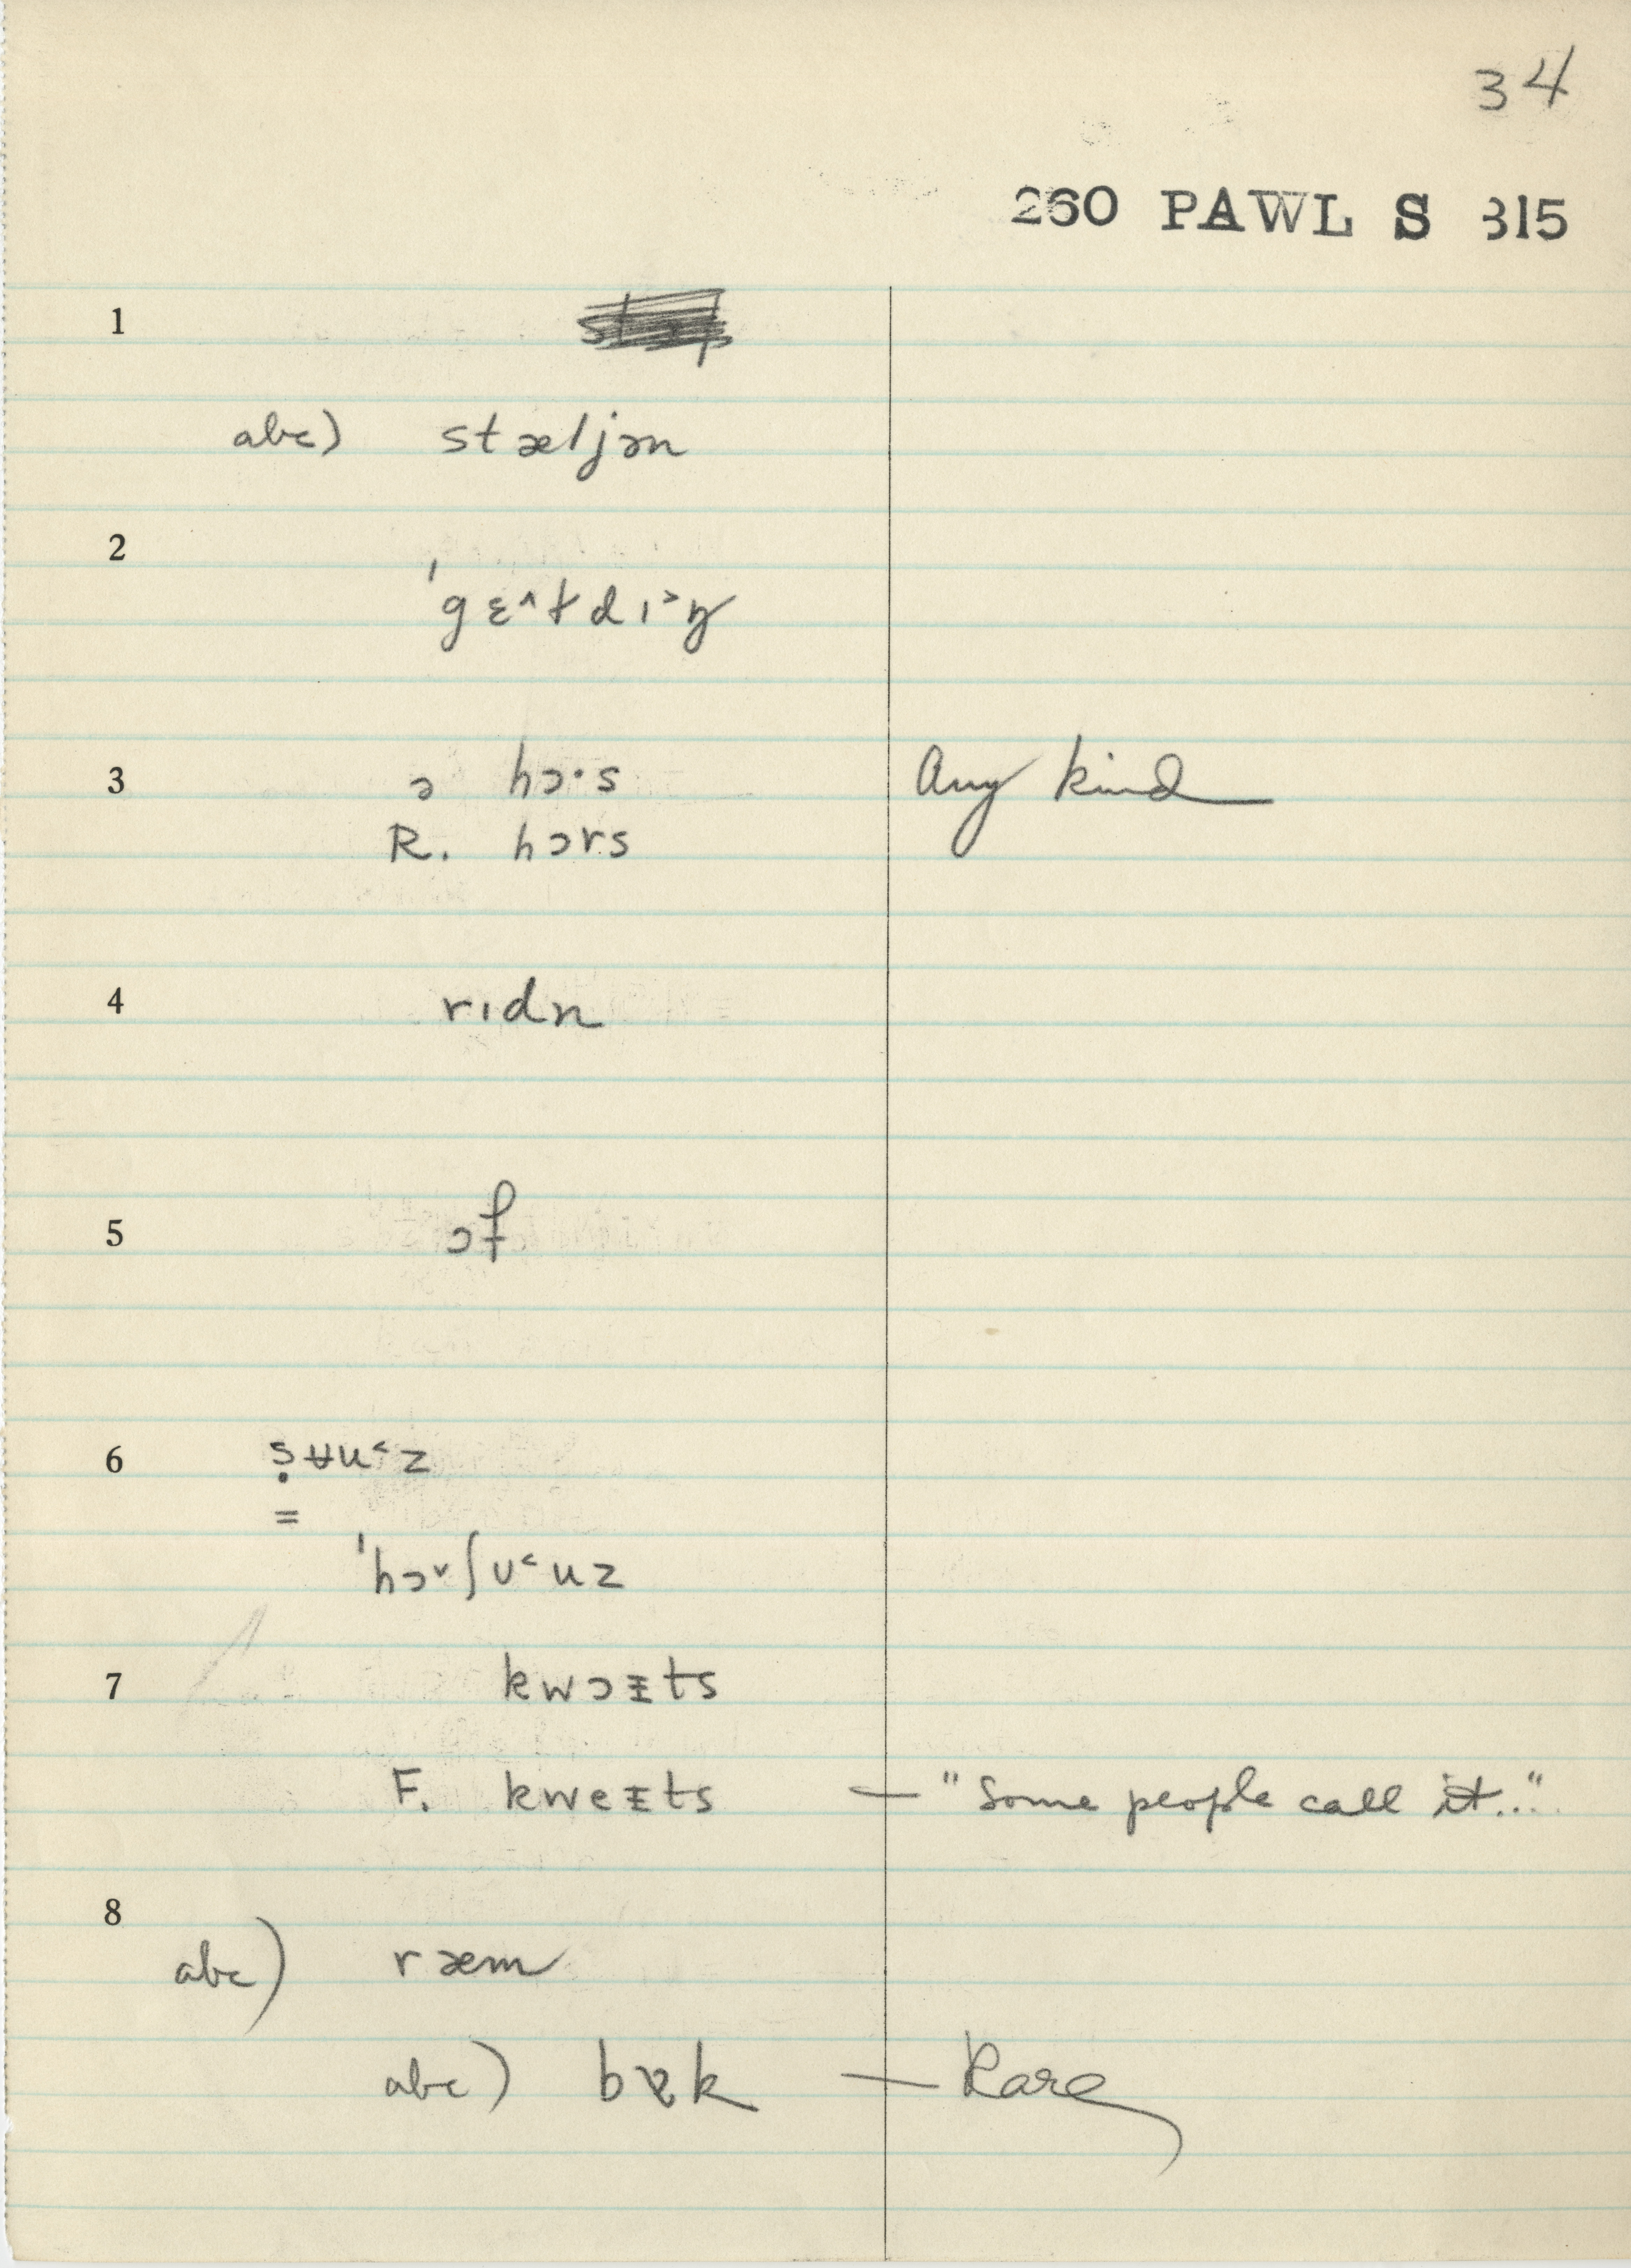 34
260 PAWL S 315
1
abc) stæljən
2
ˈgɛ^ɫdɪ˃ŋ
3 ə hɔ·s Any kind
R. hɔrs
4 rɪdn
5 ɔf
6 ṣʉu˂z
=
ˈhɔ˅ʃʊ˂uz
7 kwɔɪ̵ts
F. kweɪ̵ts — "Some people call it..."
8
abc) ræm
abc) bɐk — Rare